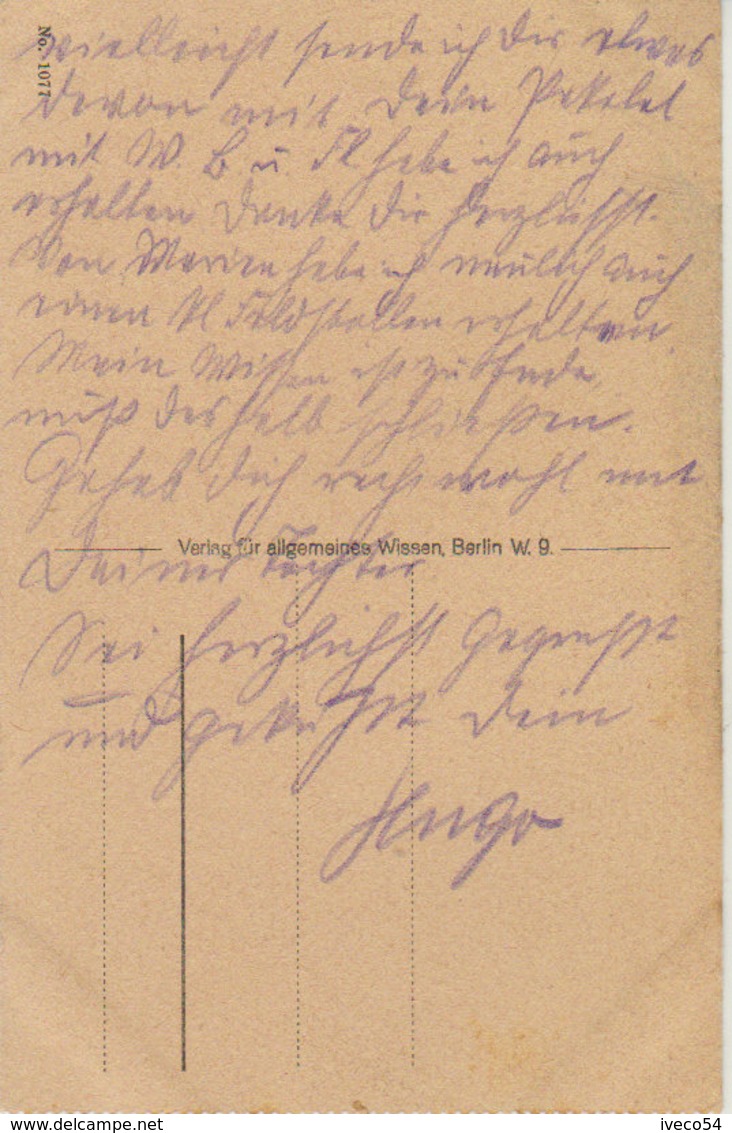 No. 1077
vielleicht sende ich Dir etwas
davon mit. Dein Paket
mit W. B u. Fl habe ich auch
erhalten Danke Dir herzlichst.
Von Marien habe ich neulich auch
einen kl Feldstollen erhalten.
Mein Wissen ist zu Ende
muß deshalb schließen.
Gehab Dich recht wohl mit
Verlag für allgemeines Wissen, Berlin W. 9.
Deiner Tochter
Sei herzlichst Gegrüsst
und geküsst Dein
Hugo
iveco54